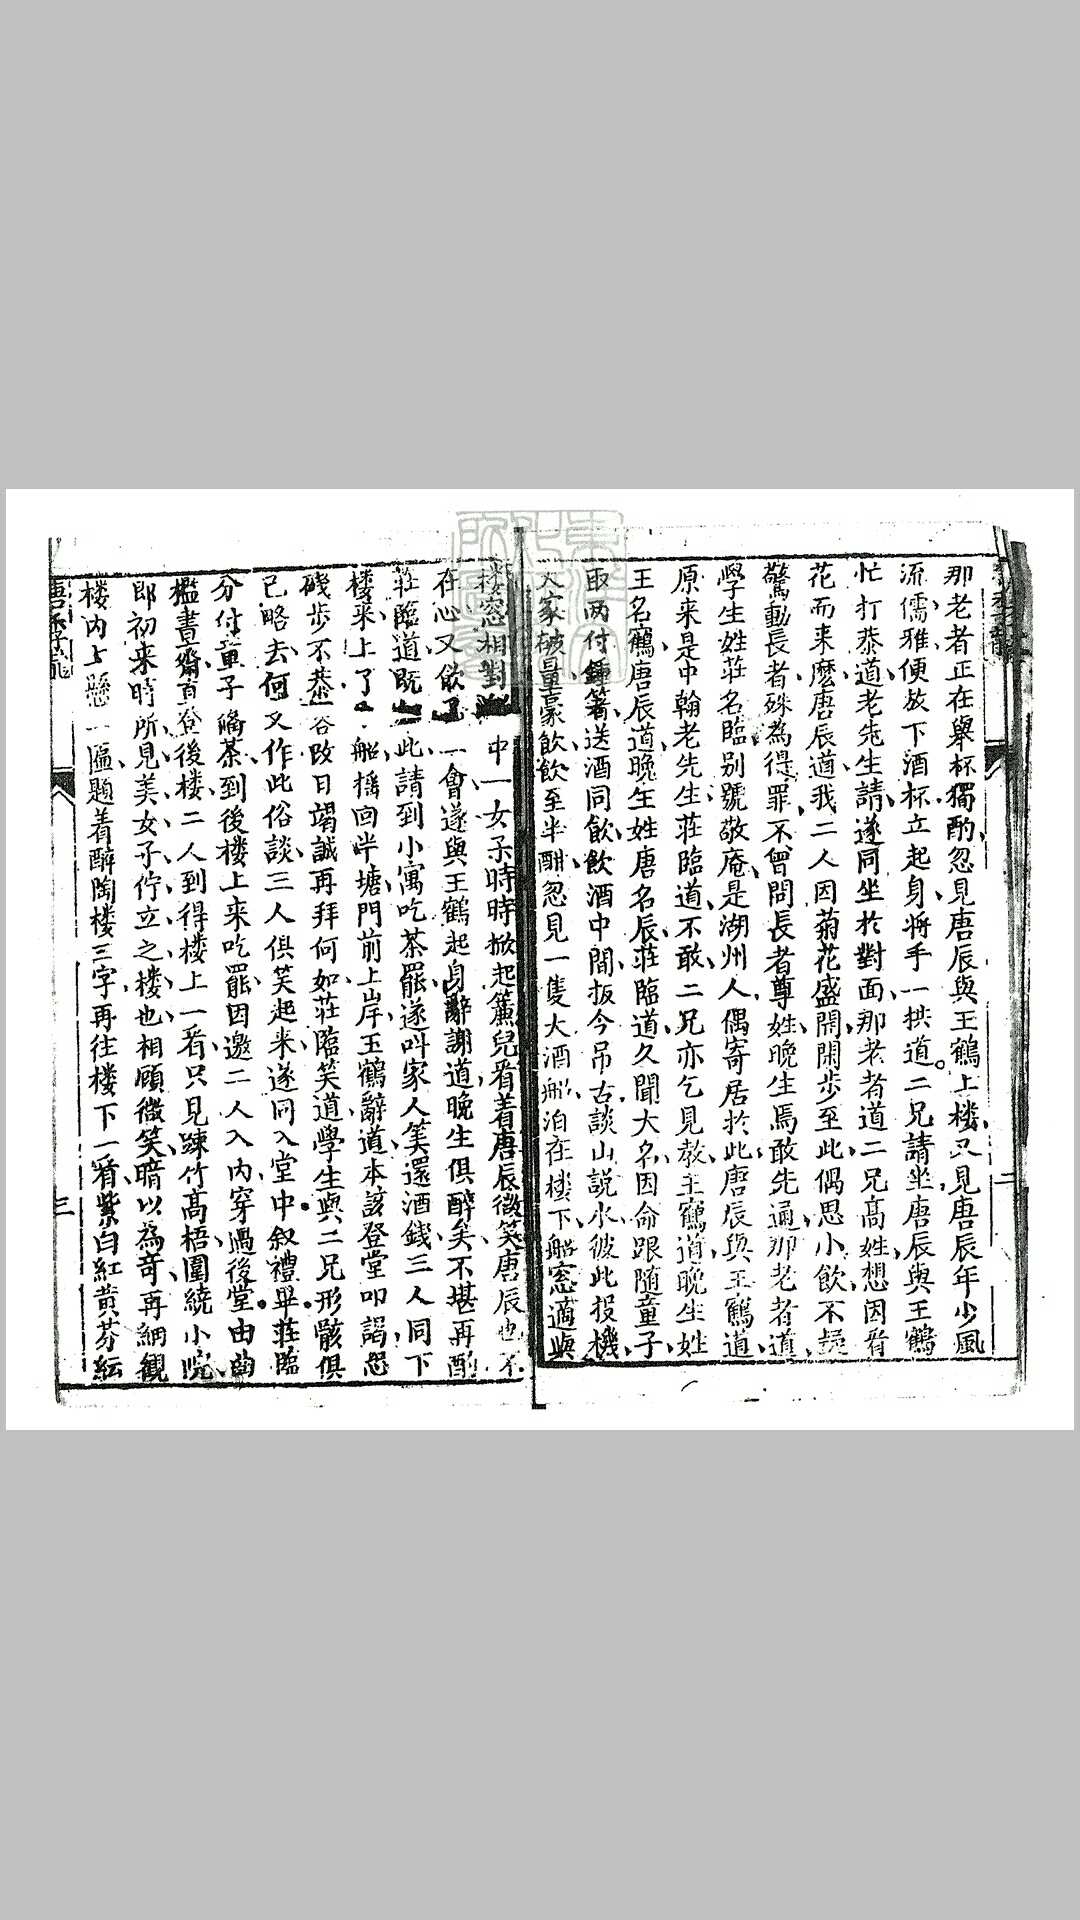 那老者正在舉杯獨酌忽見唐辰與王鶴上楼又見唐辰年少風
流儒雅便放下酒杯立起身將手一拱道二兄請坐唐辰與王鶴
忙打恭道老先生請遂同坐於對面那老者道二兄高姓想因看
花而来麽唐辰道我二人因菊花盛開閑步至此偶思小飲不疑
驚動長者殊為得罪不曾問長者尊姓晚生焉敢先通那老者道
學生姓莊名臨别號敬庵是湖州人偶寄居於此唐辰與王鶴道
原来是中翰老先生莊臨道不敢二兄亦乞見教王鶴道晚生姓
王名鶴唐辰道晚生姓唐名辰莊臨道久聞大名因命跟随童子
取两付鍾箸送酒同飲飲酒中間扳今吊古談山説水彼此投機
大家破量豪飲飲至半酣忽見一隻大酒船泊在楼下船窓適與
楼窓相對 中一女子時時掀起簾兒看着唐辰微笑唐辰也不
在心又飲了一會遂與王鶴起身辭謝道晚生俱醉矣不堪再酌
莊臨道既 此請到小寓吃茶罷遂叫家人筭還酒錢三人同下
楼来上了 船摇回半塘門前上岸王鶴辭道本該登堂叩謁恐
磯步不恭容改日竭誠再拜何如莊臨笑道學生與二兄形骸俱
已略去何又作此俗談三人俱笑起来遂同入堂中叙禮畢莊臨
分付童子 茶到後楼上来吃罷因邀二人入内穿過後堂由曲
檻書齋直登後楼二人到得楼上一看只見踈竹高梧圍繞小院
即初来時所見美女子佇立之楼也相顧微笑暗以為奇再細觀
楼内上懸一匾題着醉陶楼三字再往楼下一看紫白紅黄芬紜
二
三